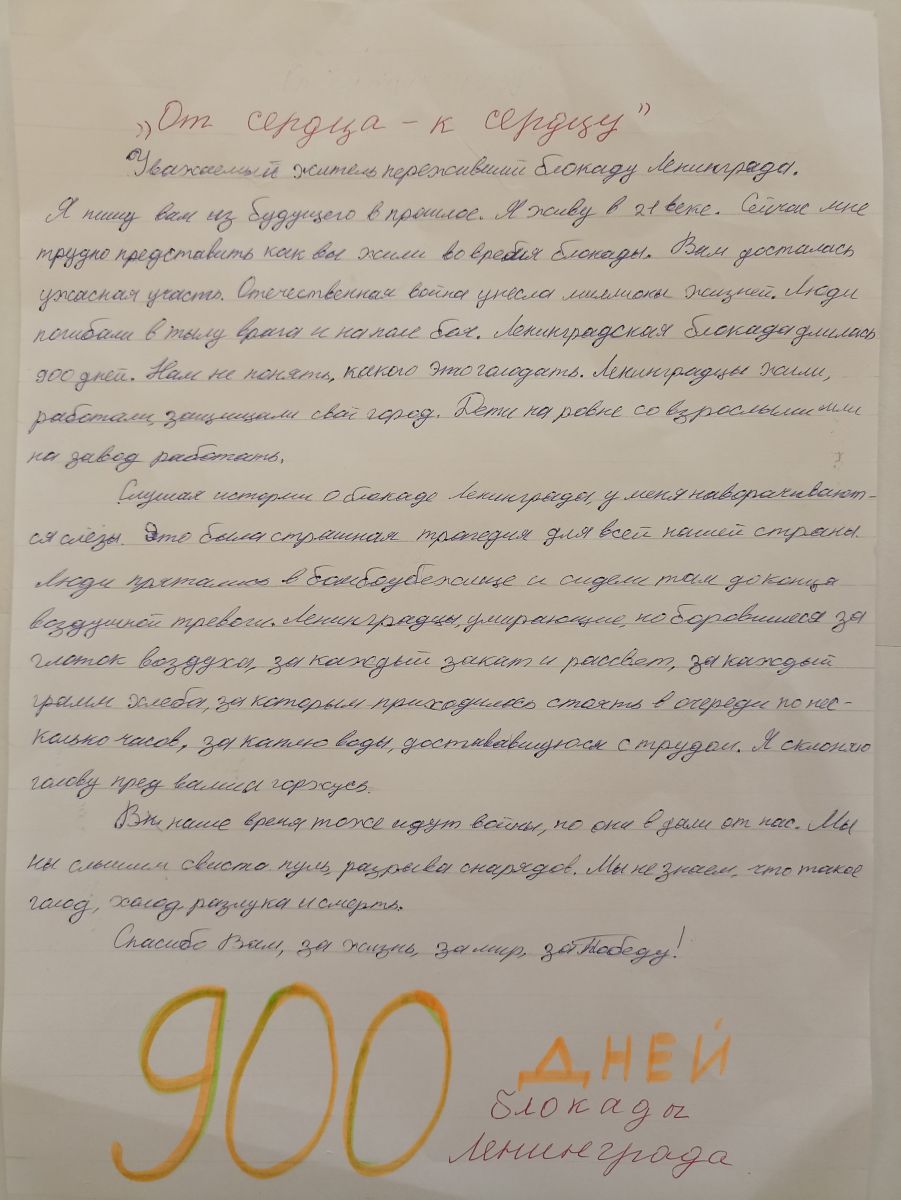 „От сердца - к сердцу"
Уважаемый житель переживший блокаду Ленинграда.
Я пишу вам из будущего в прошлое. Я живу в 21 веке. Сейчас мне
трудно представить как вы жили во время блокады. Вам досталась
ужасная участь. Отечественная война унесла миллионы жизней. Люди
погибали в тылу врага и на поле боя. Ленинградская блокада длилась
900 дней. Нам не понять, какого это голодать. Ленинградцы жили,
работали, защищали свой город. Дети на ровне со взрослыми шли
на завод работать.
Слушая истории о блокаде Ленинграда, у меня наворачивают-
ся слёзы. Это была страшная трагедия для всей нашей страны.
Люди прятались в бомбоубежище и сидели там до конца
воздушной тревоги. Ленинградцы, умирающие, но боровшиеся за
глоток воздуха, за каждый закат и рассвет, за каждый
грамм хлеба, за которым приходилось стоять в очереди по нес-
колько часов, за каплю воды, достававшуюся с трудом. Я склоняю
голову пред вами и горжусь.
В наше время тоже идут войны, но они в дали от нас. Мы
ны слышим свиста пуль, разрыва снарядов. Мы не знаем, что такое
голод, холод, разлука и смерть.
Спасибо Вам, за жизнь, за мир, за Победу!
900 ДНЕЙ
блокады
Ленинграда